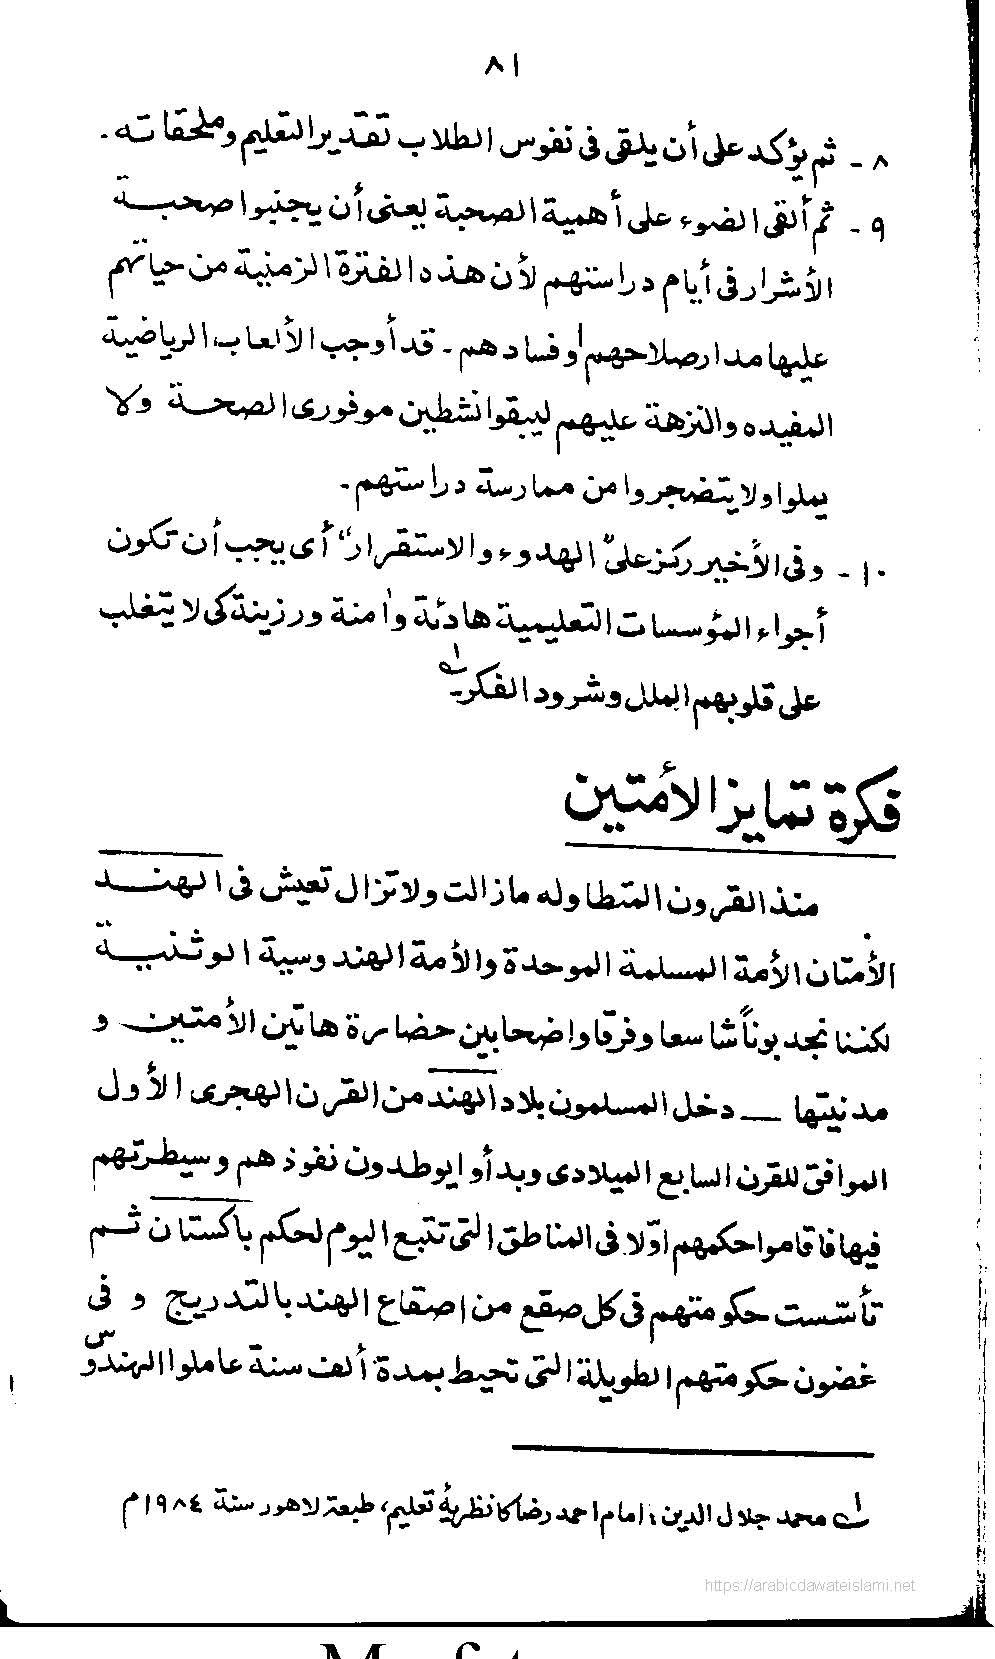 ٨١
٨ - ثم يؤكد على أن يلقى فى نفوس الطلاب تقدير التعليم وملحقاته .
٩ - ثم ألقى الضوء على أهمية الصحبة يعنى أن يجنبوا صحبة
الأشرار فى أيام دراستهم لأن هذه الفترة الزمنية من حياتهم
عليها مدار صلاحهم أو فسادهم - قد أوجب الألعاب الرياضية
المفيده والنزهة عليهم ليبقوا نشطين موفورى الصحة ولا
يملوا ولا يتضجروا من ممارسة دراستهم -
١٠ - وفى الأخير ركز على " الهدوء والاستقرار " أى يجب أن تكون
أجواء المؤسسات التعليمية هادئة وآمنة ورزينة كى لا يتغلب
على قلوبهم الملل وشرود الفكر - ١
فكرة تمايز الأمتين
منذ القرون المتطاوله مازالت ولا تزال تعيش فى الهند
الأمتان الأمة المسلمة الموحدة والأمة الهندوسية الوثنية
لكننا نجد بوناً شاسعا وفرقا واضحا بين حضارة هاتين الأمتين و
مدنيتها — دخل المسلمون بلاد الهند من القرن الهجرى الأول
الموافق للقرن السابع الميلادى وبدأوا يوطدون نفوذهم وسيطرتهم
فيها فاقاموا حكمهم اوّلا فى المناطق التى تتبع اليوم لحكم باكستان ثم
تأسّست حكومتهم فى كل صقع من اصقاع الهند بالتدريج و فى
غضون حكومتهم الطويلة التى تحيط بمدة ألف سنة عاملوا الهندوس
١ محمد جلال الدين : امام احمد رضا كا نظريۂ تعليم ، طبعة لاهور سنة ١٩٨٤م
https://arabicdawateislami.net